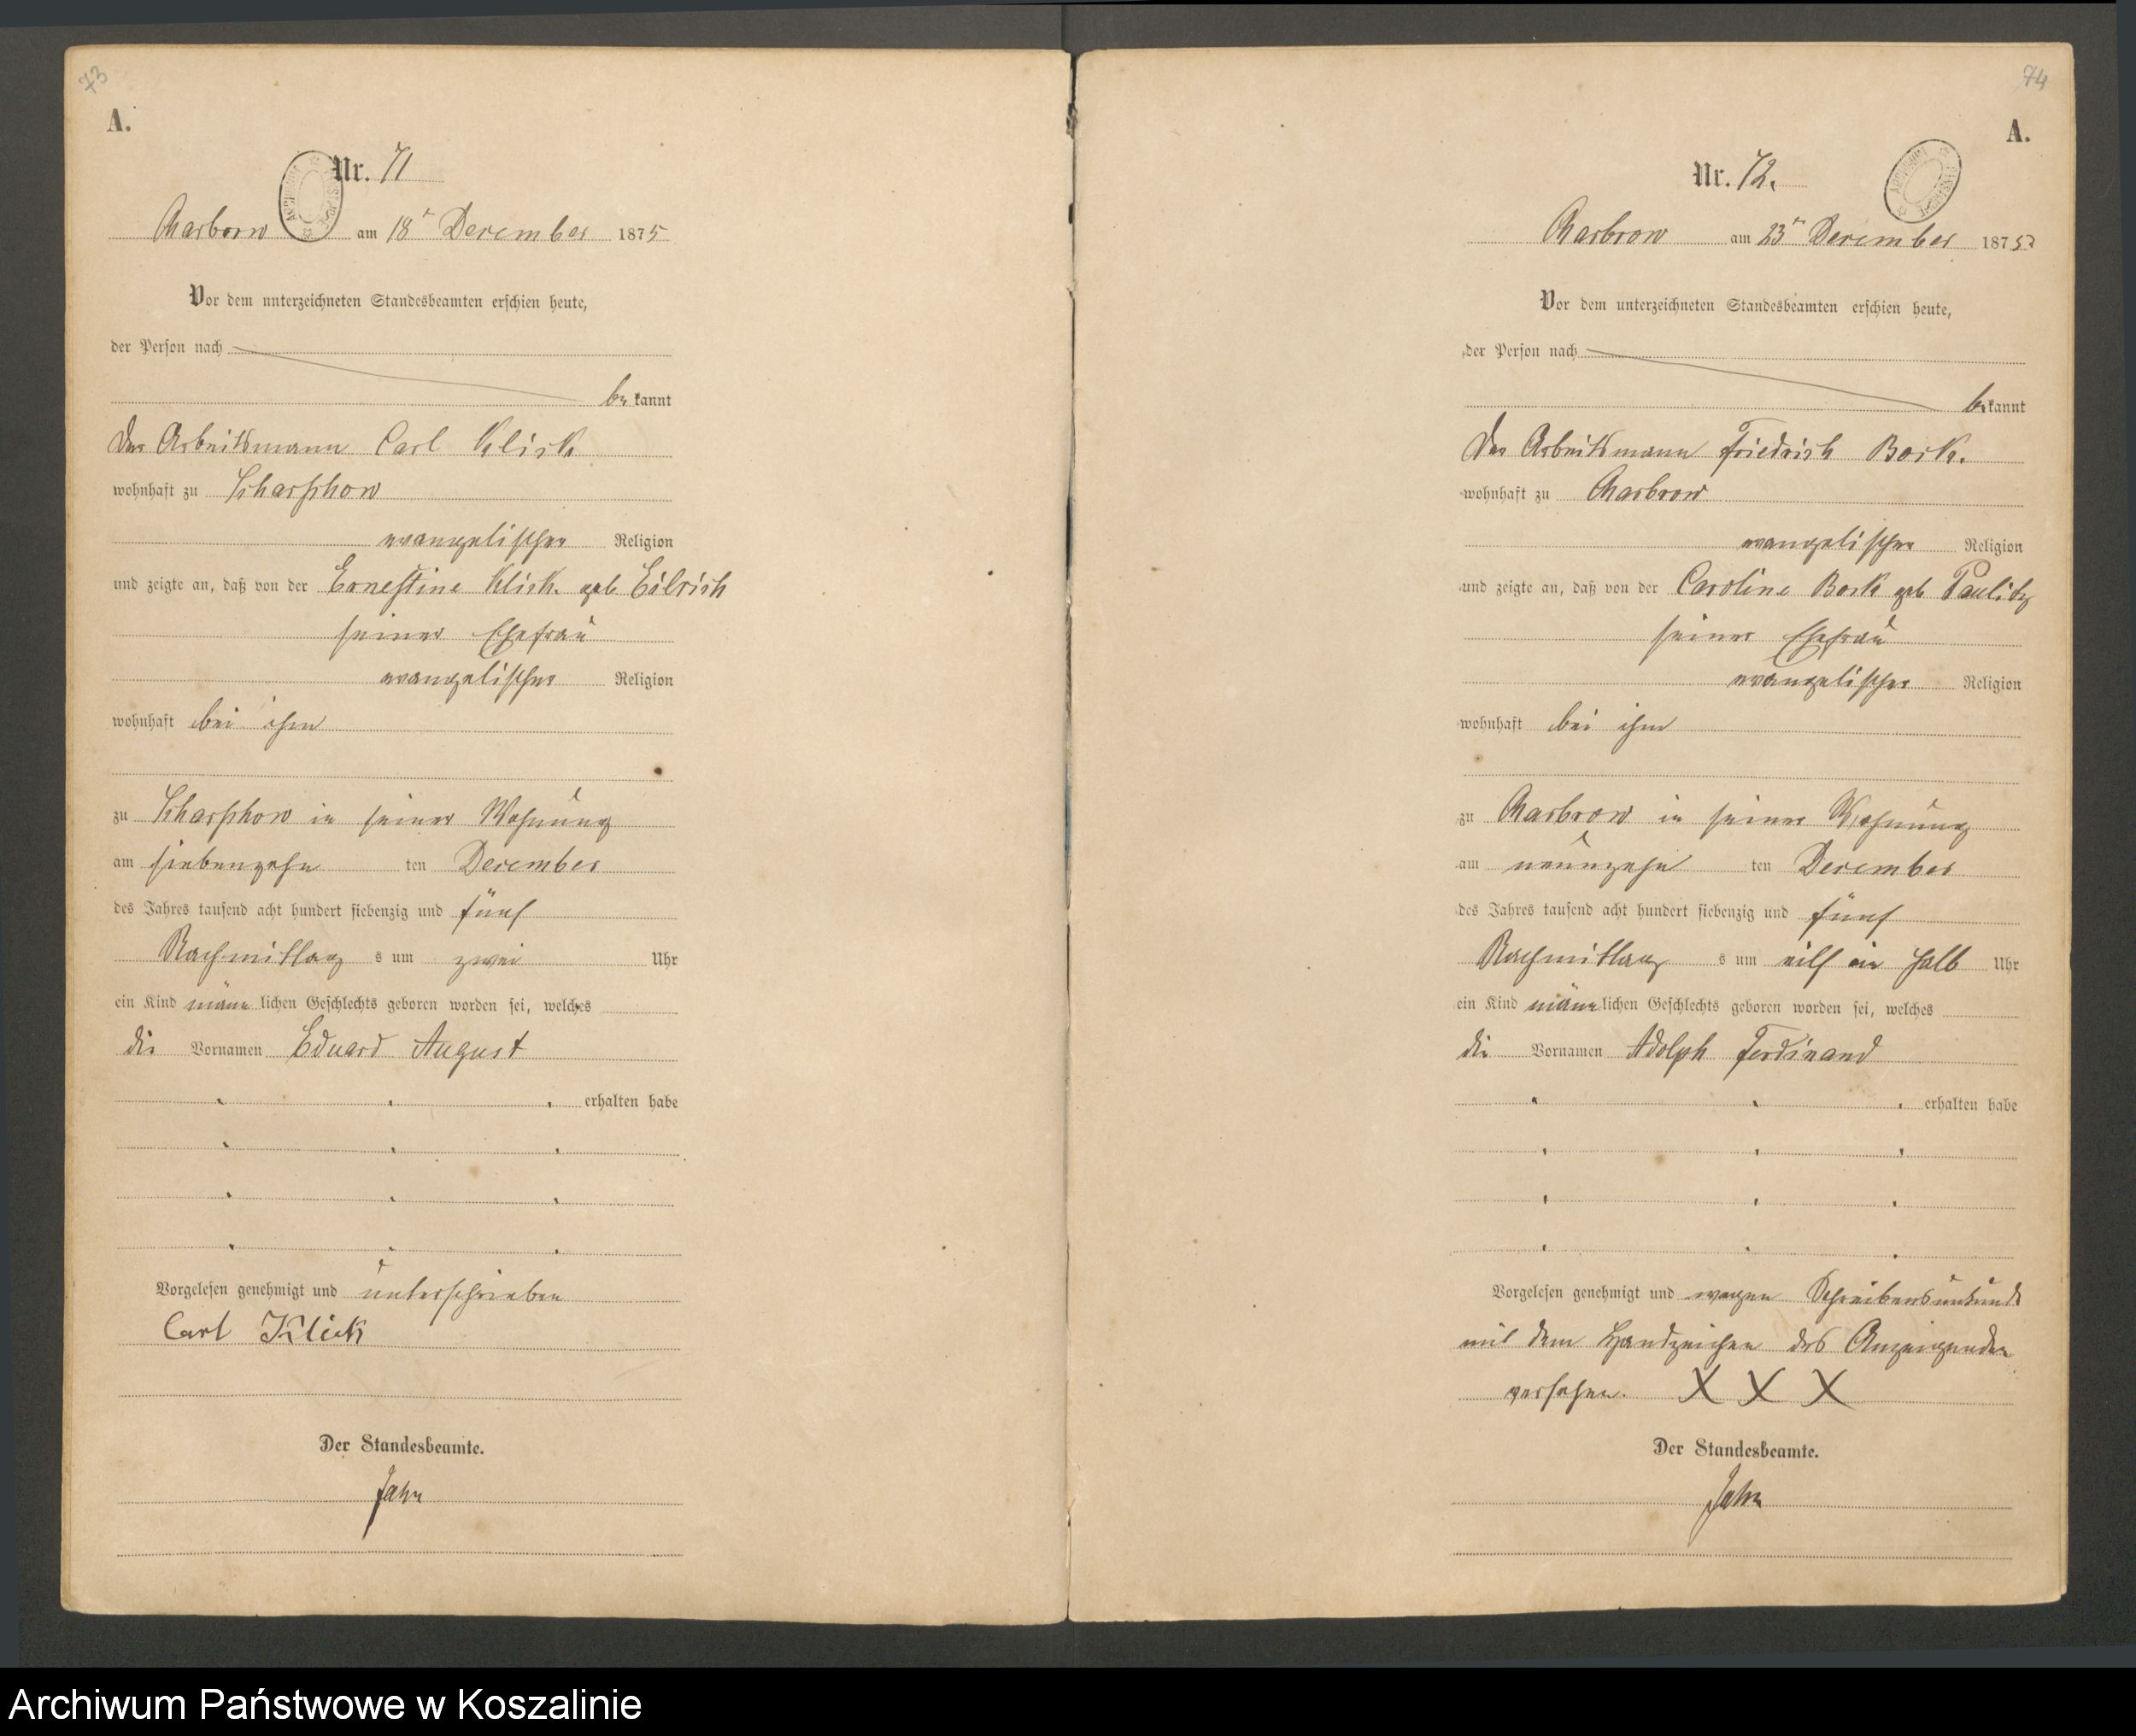 73
A.
Nr. 71
Charbrow am 18t December 1875
Vor dem unterzeichneten Standesbeamten erschien heute,
der Person nach
bekannt
Der Arbeitsmann Carl Klick
wohnhaft zu Scharschow
evangelischer Religion
und zeigte an, daß von der Ernestine Klick geb
seiner Ehefrau
evangelischer Religion
wohnhaft bei ihm
zu Scharschow in seiner Wohnung
am siebenzehn ten December
des Jahres tausend acht hundert siebenzig und fünf
Nachmittag s um zwei Uhr
ein Kind männlichen Geschlechts geboren worden sei, welches
die Vornamen Eduard August
erhalten habe
Vorgelesen genehmigt und unterschrieben
Carl Klick
Der Standesbeamte.
Jahn
74
A.
Nr. 72.
Charbrow am 23t December 1875
Vor dem unterzeichneten Standesbeamten erschien heute,
der Person nach
bekannt
Der Arbeitsmann Friedrich Bork.
wohnhaft zu Charbrow
evangelischer Religion
und zeigte an, daß von der Caroline Bork geb Paulitz
seiner Ehefrau
evangelischer Religion
wohnhaft bei ihm
zu Charbrow in seiner Wohnung
am neunzehn ten December
des Jahres tausend acht hundert siebenzig und fünf
Nachmittag s um eilf ein halb Uhr
ein Kind männlichen Geschlechts geboren worden sei, welches
die Vornamen Adolph Ferdinand
erhalten habe
Vorgelesen genehmigt und wegen Schreibensunkunde
mit dem Handzeichen des Anzeigenden
versehen. X X X
Der Standesbeamte.
Jahn
Archiwum Państwowe w Koszalinie